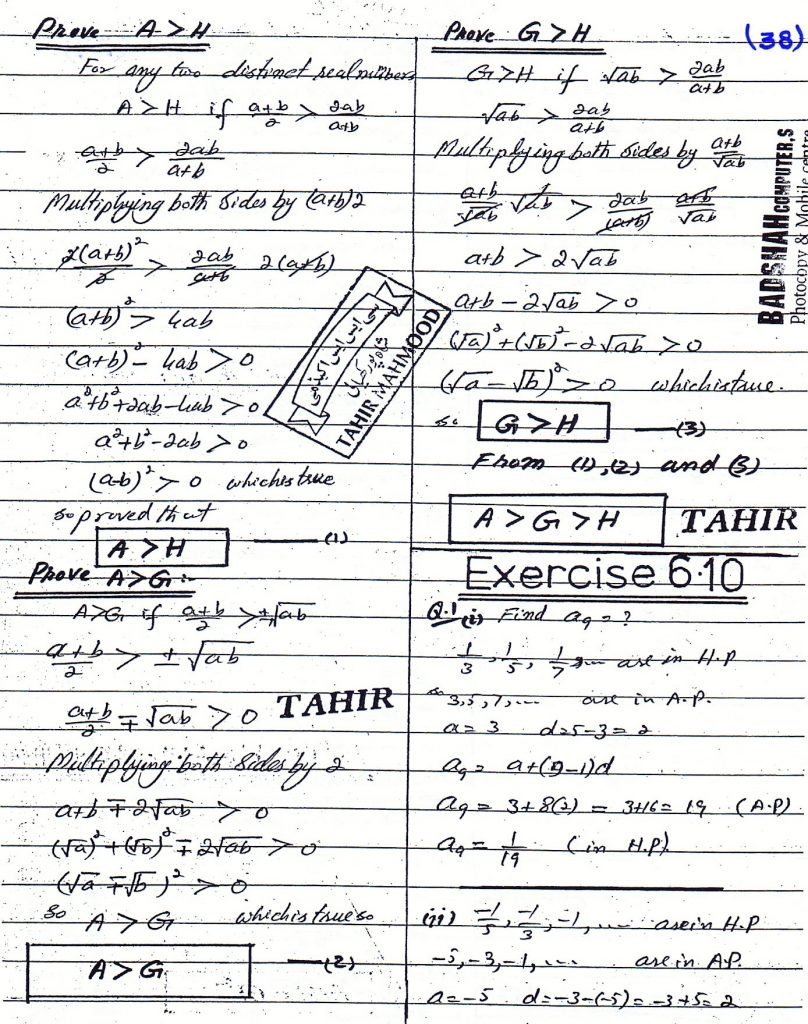 (38)
Prove A > H
For any two distinct real numbers
A > H if a+b/2 > 2ab/a+b
a+b/2 > 2ab/a+b
Multiplying both sides by (a+b)2
2(a+b)²/2 > 2ab/a+b 2(a+b)
(a+b)² > 4ab
(a+b)² - 4ab > 0
a²+b²+2ab-4ab > 0
a²+b²-2ab > 0
(a-b)² > 0 which is true
so proved that
A > H —— (1)
Prove A>G :-
A>G if a+b/2 > ±√ab
a+b/2 > ±√ab
a+b/2 ∓ √ab > 0
Multiplying both sides by 2
a+b ∓ 2√ab > 0
(√a)² + (√b)² ∓ 2√ab > 0
(√a ∓ √b)² > 0
so A > G which is true so
A > G —— (2)
سی ایس ایس اکیڈمی
TAHIR MAHMOOD
TAHIR
Prove G > H
G > H if √ab > 2ab/a+b
√ab > 2ab/a+b
Multiplying both sides by a+b/√ab
a+b/√ab √ab > 2ab/(a+b) a+b/√ab
a+b > 2√ab
a+b - 2√ab > 0
(√a)²+(√b)²-2√ab > 0
(√a - √b)² > 0 which is true.
so G > H —— (3)
From (1), (2) and (3)
A > G > H
TAHIR
BADSHAH COMPUTER,S
Photocopy & Mobile centre
Exercise 6.10
Q.1 (i) Find a₉ = ?
1/3, 1/5, 1/7, ... are in H.P
so 3, 5, 7, ... are in A.P.
a = 3 d = 5-3 = 2
a₉ = a+(9-1)d
a₉ = 3+8(2) = 3+16 = 19 (A.P)
a₉ = 1/19 (in H.P)
(ii) -1/5, -1/3, -1, ... are in H.P
-5, -3, -1, ... are in A.P.
a = -5 d = -3-(-5) = -3+5 = 2